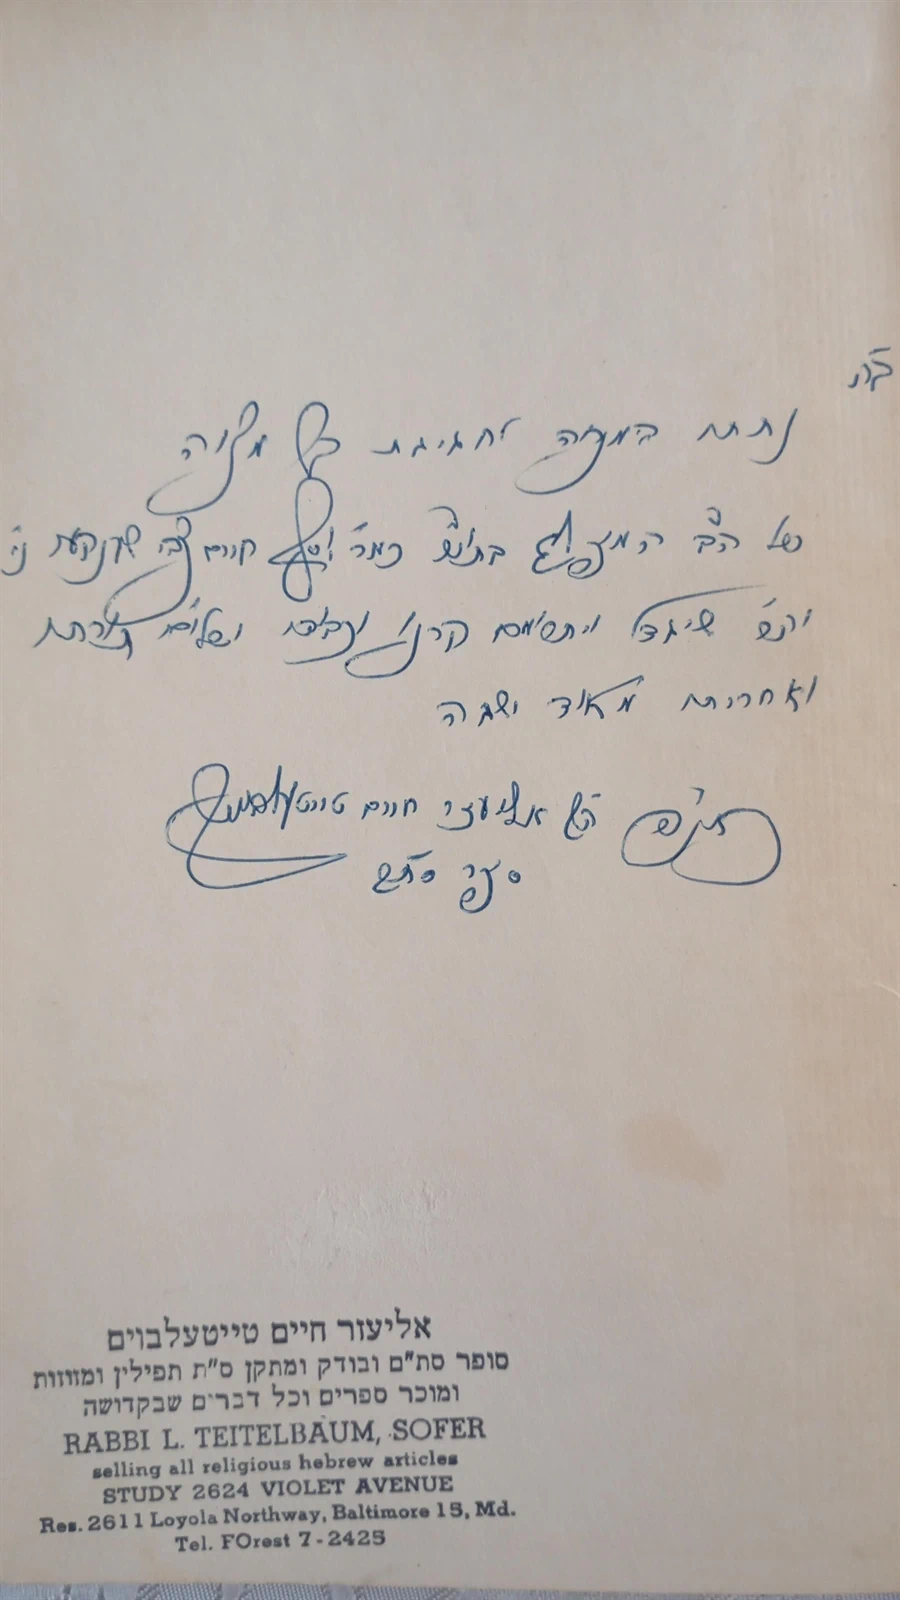 ב"ה
נתת במתנה לחגיגת בר מצוה
של הב' המופלג בתוי"ש כמר יוסף חיים נ"י
והש' שיגדל ויתרומם קרנו ושלום תורתו
ואחריתו מאוד ישגה
הק' אליעזר חיים טייטעלבוים
סופר סת"ם
אליעזר חיים טייטעלבוים
סופר סת"ם ובודק ומתקן ס"ת תפילין ומזוזות
ומוכר ספרים וכל דברים שבקדושה
RABBI L. TEITELBAUM, SOFER
selling all religious hebrew articles
STUDY 2624 VIOLET AVENUE
Res. 2611 Loyola Northway, Baltimore 15, Md.
Tel. FOrest 7-2425